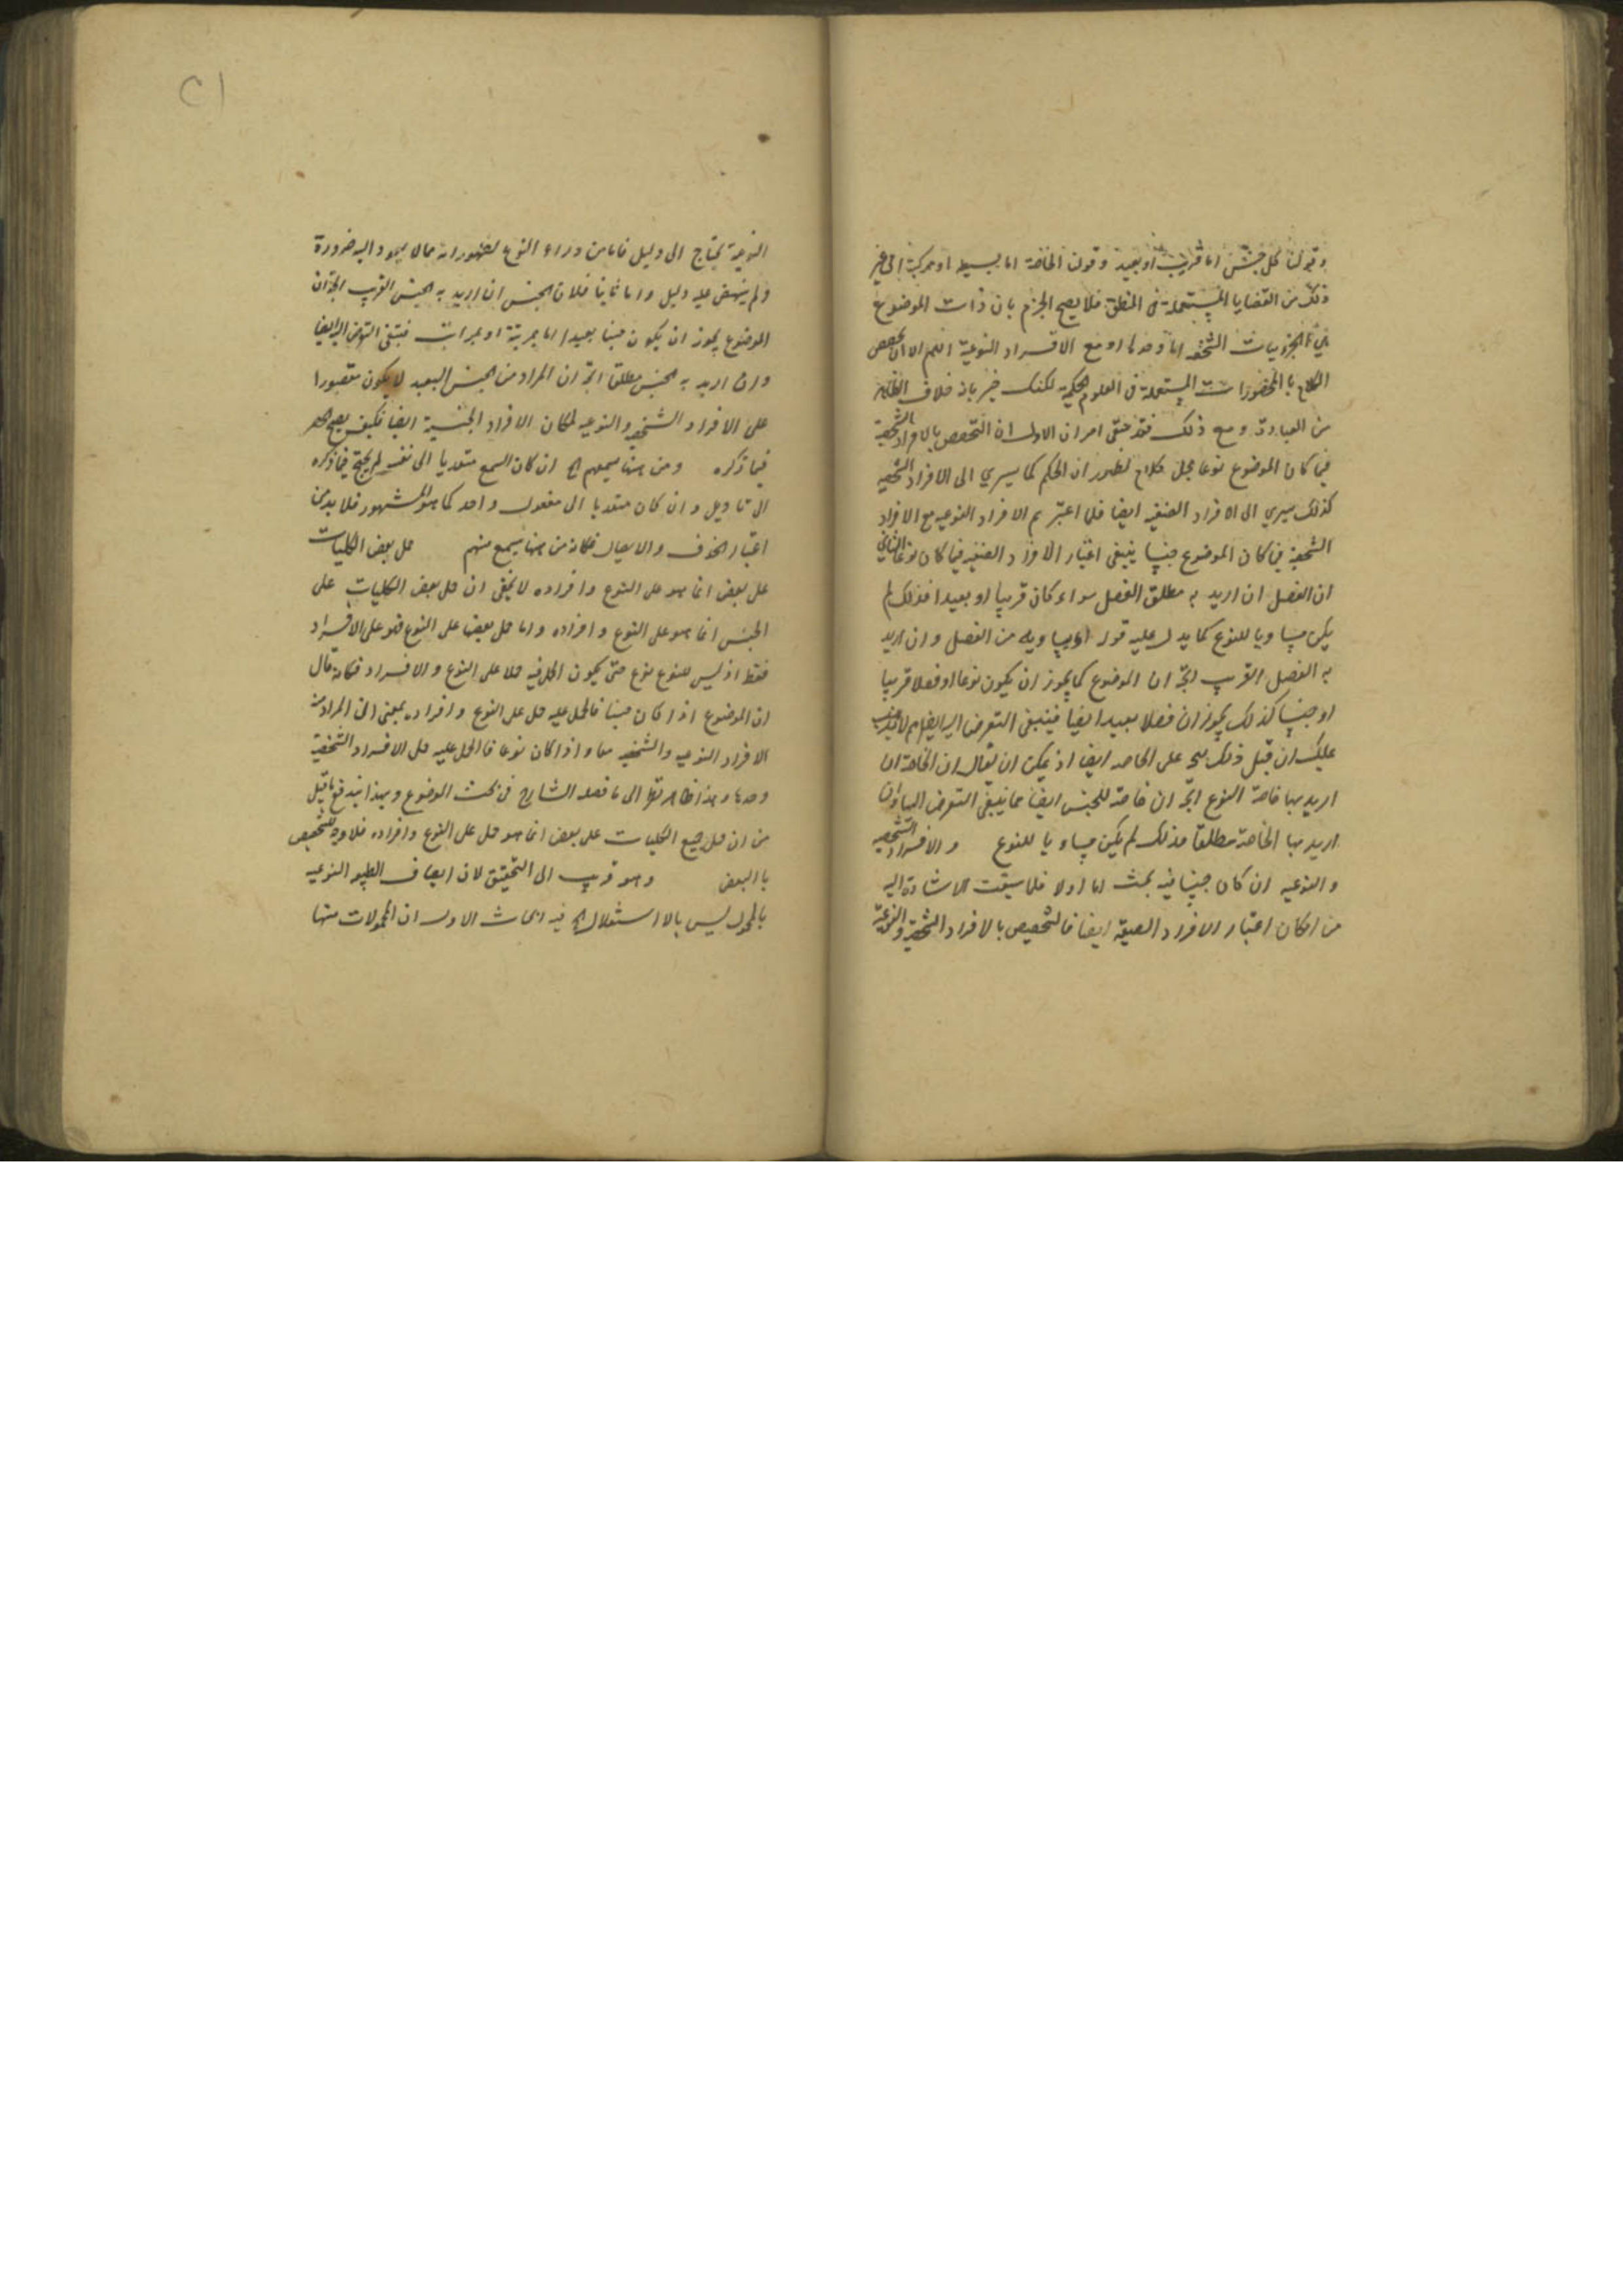 وقولنا كل جنس اما قريب او بعيد وقولنا الخاصة اما بسيطه او مركبة الى غير
ذلك من القضايا المستعملة فى المنطق فلا يصح الجزم بان ذات الموضوع
الجزويات الشخصيه اما وحدها او مع الافراد النوعية اللهم الا ان يخصص
الكلام بالمحصورات المستعملة فى العلوم الحكمية لكنك خبير بانه خلاف الظاهر
من العبارة ومع ذلك فقد بقى امران الاول ان التخصيص بالافراد الشخصية
فيما كان الموضوع نوعا محل كلام لظهور ان الحكم كما يسري الى الافراد الشخصيه
كذلك يسري الى الافراد الصنفيه ايضا فلما اعتبرتم الافراد النوعيه مع الافراد
الشخصية فيما كان الموضوع جنسا ينبغى اعتبار الافراد الصنفيه فيما كان نوعا الثاني
ان الفصل ان اريد به مطلق الفصل سواء كان قريبا او بعيدا فذلك لم
يكن مساويا للنوع كما يدل عليه قوله او يساويه من الفصل وان اريد
به الفصل القريب اتجه ان الموضوع كما يجوز ان يكون نوعا او فصلا قريبا
او جنسا كذلك يجوز ان فصلا بعيدا ايضا فينبغى التعرض اليه ايضا ثم لا يذهب
عليك ان قبل ذلك على الخاصه ايضا اذ يمكن ان يقال ان الخاصة ان
اريد بها خاصة النوع اتجه ان خاصة للجنس ايضا مما ينبغى التعرض اليها وان
اريد بها الخاصة مطلقا فذلك لم يكن مساويا للنوع والافراد الشخصيه
والنوعيه ان كان جنسا فيه بحث اما اولا فلما سبقت الاشارة اليه
من امكان اعتبار الافراد الصنفية ايضا فالتخصيص بالافراد الشخصية والنوعية
النوعية يحتاج الى دليل فاما من وراء النوع لظهور انه مما لا يعود اليه ضرورة
ولم ينهض عليه دليل واما ثانيا فلان الجنس ان اريد به الجنس القريب اتجه ان
الموضوع يجوز ان يكون جنسا بعيدا اما بمرتبة او بمراتب فينبغى التعرض اليه ايضا
وان اريد به الجنس مطلقا اتجه ان المراد من الجنس البعيد لا يكون مقصورا
على الافراد الشخصيه والنوعيه لمكان الافراد الجنسية ايضا فكيف يصح الحصر
فيما ذكره ومن هنا يسمعهم الخ ان كان السمع متعديا الى نفسه لم يحتج فيما ذكره
الى تاويل وان كان متعديا الى مفعول واحد كما هو المشهور فلا بد من
اعتبار الحذف والايصال فكانه من هنا يسمع منهم حمل بعض الكليات
على بعض انما هو على النوع وافراده لا يخفى ان حمل بعض الكليات على
الجنس انما هو على النوع وافراده واما حمل بعضها على النوع فهو على الافراد
فقط اذ ليس للنوع نوع حتى يكون الحمل فيه حملا على النوع والافراد فكانه قال
ان الموضوع اذا كان جنسا فالحمل عليه حمل على النوع وافراده بمعنى ان المراد منه
الافراد النوعيه والشخصيه معا واذا كان نوعا فالحمل عليه حمل الافراد الشخصية
وحدها وهذا ظاهر نظرا الى ما فصله الشارح فى بحث الموضوع وبهذا يندفع ما قيل
من ان حمل جميع الكليات على بعض انما هو حمل على النوع وافراده فلا وجه للتخصيص
بالبعض وهو قريب الى التحقيق لان اتصاف الطبيعه النوعيه
بالمحمول ليس بالاستقلال الخ فيه ابحاث الاول ان المحمولات منها